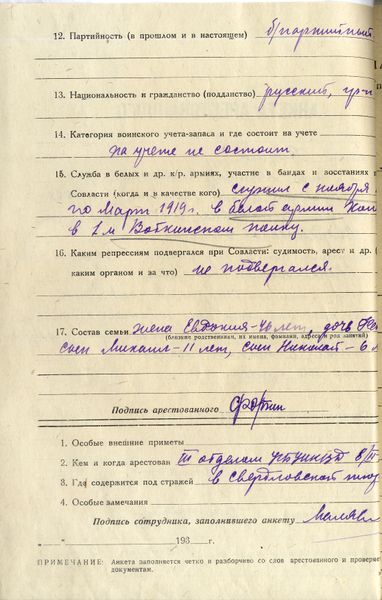 12. Партийность (в прошлом и в настоящем) б/партийный
13. Национальность и гражданство (подданство) русский, гр-н
14. Категория воинского учета-запаса и где состоит на учете
на учете не состоит
15. Служба в белых и др. к/р. армиях, участие в бандах и восстаниях п
Совласти (когда и в качестве кого) служил с ноября
по март 1919 г. в белой армии Кол
в 2-м Воткинском полку.
16. Каким репрессиям подвергался при Совласти: судимость, арест и др. (
каким органом и за что) не подвергался.
17. Состав семьи жена Евдокия-46 лет, дочь
(близкие родственники, их имена, фамилии, адреса и род занятий
сын Михаил-11 лет, сын Николай-6 л
Подпись арестованного
1. Особые внешние приметы
2. Кем и когда арестован III отделом УГБ УНКВД 8/III
3. Где содержится под стражей в Свердловской тюр
4. Особые замечания
Подпись сотрудника, заполнившего анкету
" " 193 г.
ПРИМЕЧАНИЕ: Анкета заполняется четко и разборчиво со слов арестованного и проверяе
документам.